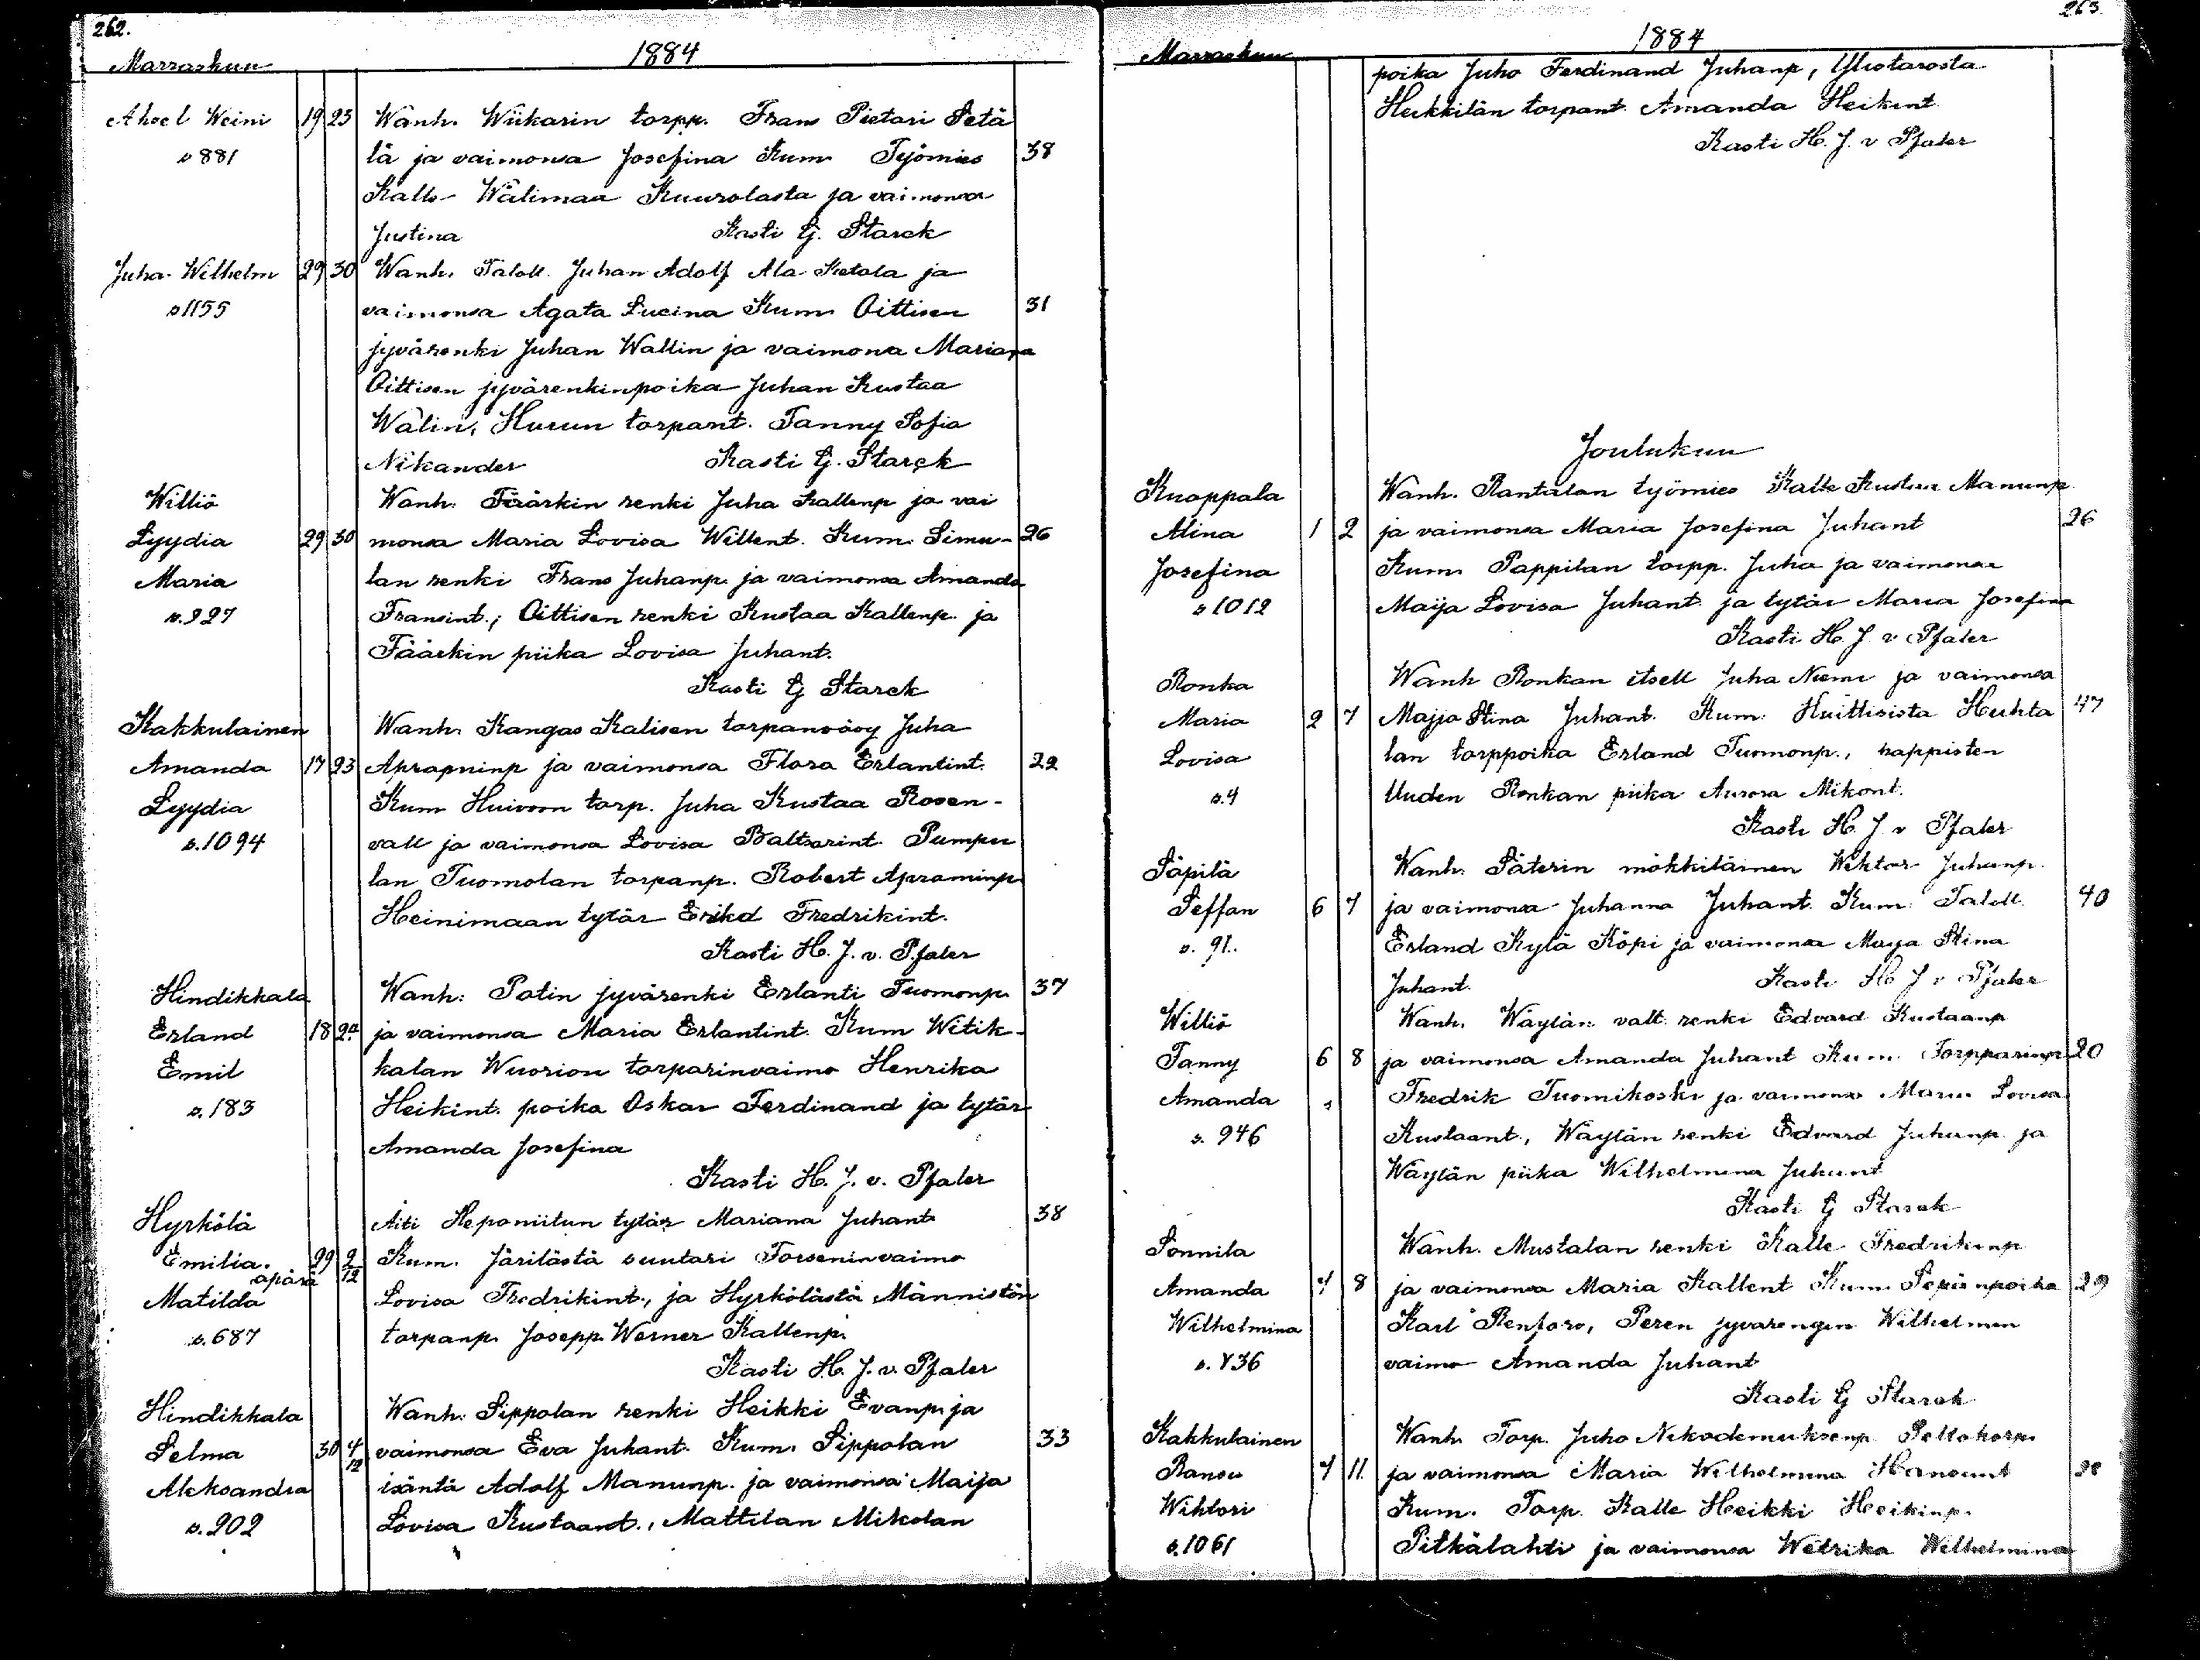 262.
Marraskuu
1884
Aksel Weini 19 23 Wanh. Wiikarin torpp. Frans Pietari Setä
s 881 lä ja vaimonsa Josefina Kum. Työmies 38
Kalle Wälimaa Kuurolasta ja vaimonsa
Justina Kasti G. Starck
Juha Wilhelm 29 30 Wanh. Taloll. Juhan Adolf Ala Ketola ja
s 1155 vaimonsa Agata Lucina Kum. Oittisen 31
jyvärenki Juhan Wallin ja vaimonsa Mariana
Oittisen jyvärenkinpoika Juhan Kustaa
Walin, Hurun torpant. Fanny Sofia
Nikander Kasti G. Starck
Williö Wanh. Täärkin renki Juha Kallenp ja vai
Lyydia 29 30 monsa Maria Lovisa Willent. Kum. Simu- 26
Maria lan renki Frans Juhanp. ja vaimonsa Amanda
s. 227 Fransint.; Oittisen renki Kustaa Kallenp. ja
Täärkin piika Lovisa Juhant.
Kasti G Starck
Kakkulainen Wanh. Kangas Kalisen torpanvävy Juha
Amanda 17 23 Apraminp ja vaimonsa Flora Erlantint. 22
Lyydia Kum Huivoon torp. Juha Kustaa Rosen-
s. 1094 vall ja vaimonsa Lovisa Baltsarint. Pumpu
lan Tuomolan torpanp. Robert Apraminp
Heinimaan tytär Fredrikint.
Kasti H. J. v. Pfaler
Hindikkala Wanh: Potin jyvärenki Erlanti Tuomonp. 37
Erland 18 ja vaimonsa Maria Erlantint. Kum Witik-
Emil kalan Wuorion torparinvaimo Henrika
s. 183 Heikint. poika Oskar Ferdinand ja tytär
Amanda Josefina
Kasti H. J. v. Pfaler
Hyrkölä Äiti Heponiitun tytär Mariana Juhant 38
Emilia. 29 2/12 Kum. Järilästä suutari Forseninvaimo
äpärä
Matilda Lovisa Fredrikint., ja Hyrkölästä Männistön
s. 687 torpanp. Josepp Werner Kallenp.
Kasti H. J. v. Pfaler
Hindikkala Wanh: Sippolan renki Heikki Evanp. ja
Selma 30 4/12 vaimonsa Eva Juhant. Kum. Sippolan 33
Aleksandra isäntä Adolf Manunp. ja vaimonsa Maija
s. 202 Lovisa Kustaant., Mattilan Mikolan
263.
1884
Marraskuu
poika Juho Ferdinand Juhanp, Ylistarosta
Heikkilän torpant. Amanda Heikint.
Kasti H. J. v Pfaler
Joulukuu
Knappala Wanh. Rantalan työmies Kalle Kustaa Manunp.
Alina 1 2 ja vaimonsa Maria Josefina Juhant 26
Josefina Kum. Pappilan torpp. Juha ja vaimonsa
s 1012 Maija Lovisa Juhant. ja tytär Maria Josefina
Kasti H. J. v Pfaler
Ronka Wanh Ronkan itsell Juha Niemi ja vaimonsa
Maria 2 7 Majja Stina Juhant. Kum: Huittisista Huhta 47
Lovisa lan torppoika Erland Tuomonp.,
s. 4 Uuden Ronkan piika Aurora Mikont.
Kasti H. J. v Pfaler
Säpilä Wanh. Säterin mökkiläinen Wiktor Juhanp.
Seffan 6 7 ja vaimonsa Juhanna Juhant. Kum. Taloll. 40
s. 91. Erland Kylä Köpi ja vaimonsa Maija Stina
Juhant. Kasti H J v Pfaler
Williö Wanh. Wäylän valt. renki Edvard Kustaanp
Fanny 6 8 ja vaimonsa Amanda Juhant Kum. Torpparinp 20
Amanda Fredrik Tuomikoski ja vaimonsa Maria Lovisa
s. 946 Kustaant., Wäylän renki Edvard Juhanp. ja
Wäylän piika Wilhelmina Juhant
Kasti G Starck
Sonnila Wanh. Mustalan renki Kalle Fredrikinp
Amanda 7 8 ja vaimonsa Maria Kallent Kum. Sepänpoika 29
Wilhelmina Karl Renfors, Peren jyvärengin Wilhelmin
s. 836 vaimo Amanda Juhant
Kasti G Starck
Kakkulainen Wanh. Torp. Juho Nikodemuksenp. Peltokorpi
Ransu 7 11. ja vaimonsa Maria Wilhelmina
Wihtori Kum. Torp. Kalle Heikki Heikinp.
s. 1061 Pitkälahti ja vaimonsa Wetrika Wilhelmina